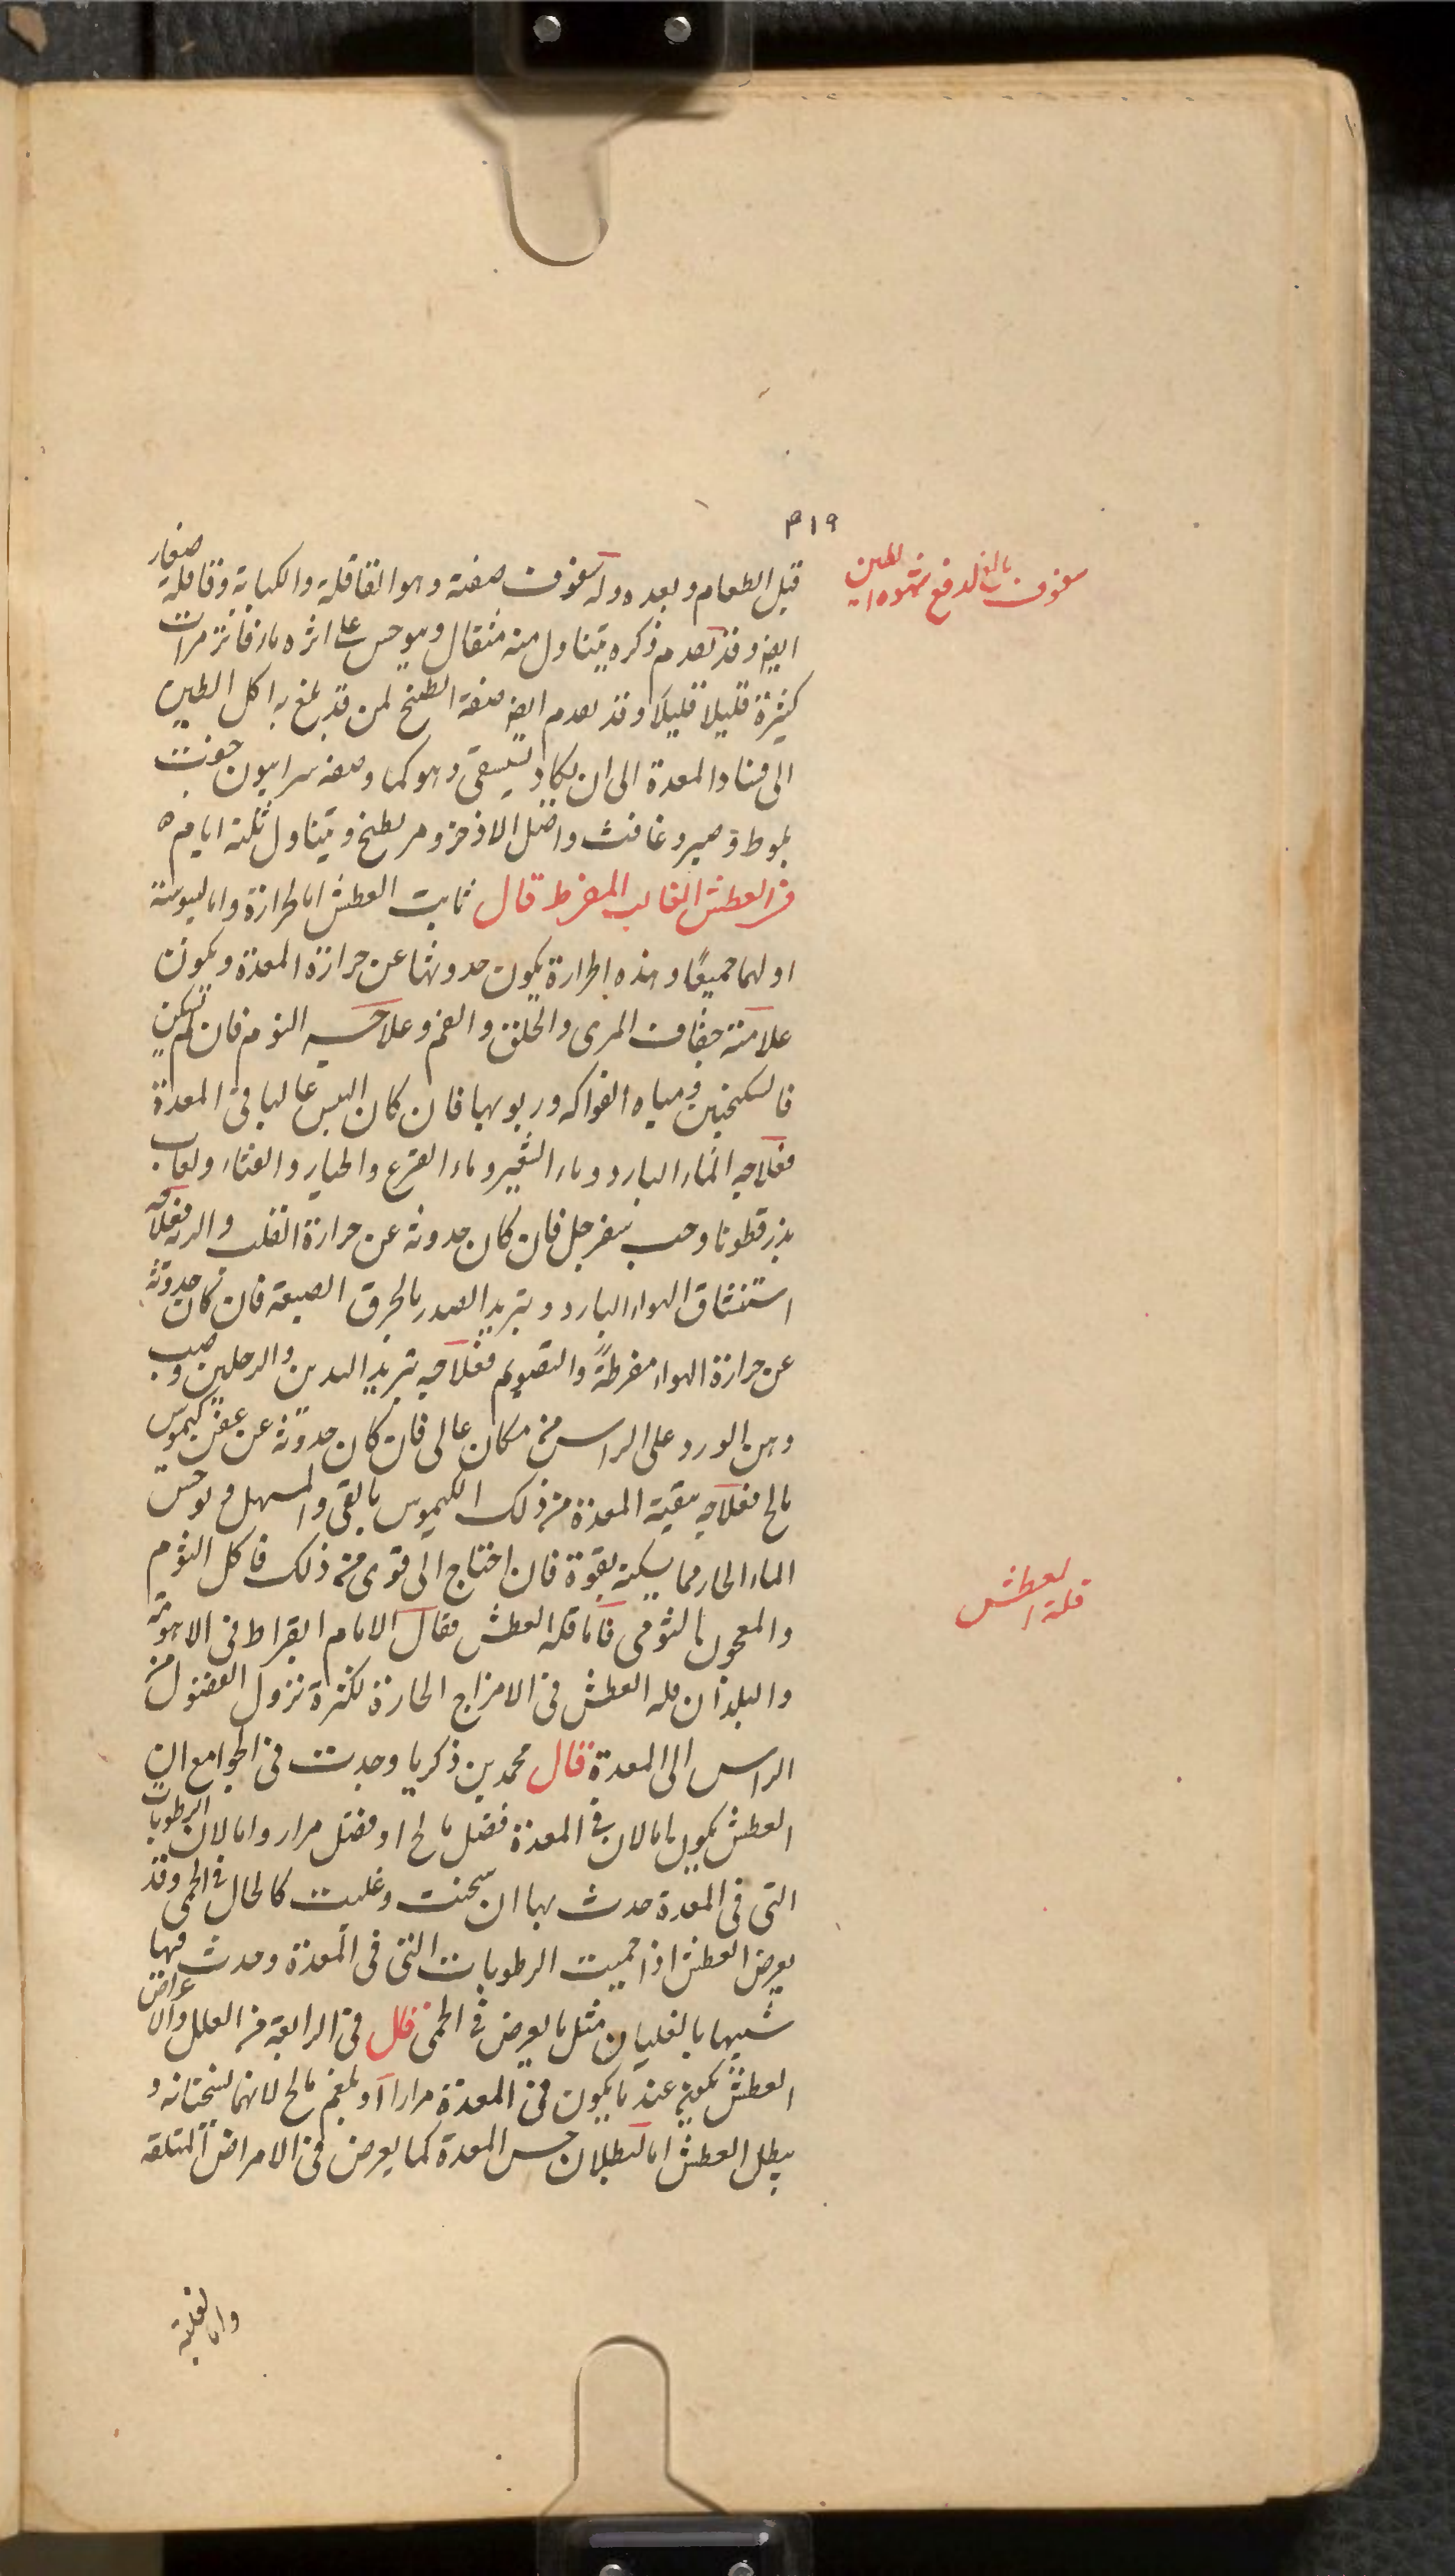 ٣١٩
سفوف بالغ لدفع شهوة الطين
قبل الطعام وبعده وله سفوف صفته وهو القاقلة والكبابة وقاقلة صغار
ايضا وقد تقدم ذكره يتناول منه مثقال ويوحس على اثره ماء فاتر مرات
كثيرة قليلا قليلا وقد تقدم ايضا صفة الطبيخ لمن قد بلغ به اكل الطين
الى فساد المعدة الى ان يكاد يستسقى وهو كما وصفه سرابيون جفت
بلوط وصبر وغافث واصل الاذخر ومر يطبخ ويتناول ثلثة ايام ه
فى العطش الغالب المفرط قال ثابت العطش اما لحرارة واما ليبوسة
او لهما جميعًا وهذه الحرارة يكون حدوثها عن حرارة المعدة ويكون
علامته جفاف المرى والحلق والفم وعلاجه النوم فان لم يسكن
فالسكنجبين ومياه الفواكه وربوبها فان كان اليبس غالبا فى المعدة
فعلاجه الماء البارد وماء الشعير وماء القرع والخيار والقثاء ولعاب
بذرقطونا وحب سفرجل فان كان حدوثه عن حرارة القلب والرية فعلاجه
استنشاق الهواء البارد وتبريد الصدر بالخرق الصبغة فان كان حدوثه
عن حرارة الهواء مفرطةً والتصويم فعلاجه تبريد اليدين والرجلين وصب
دهن الورد على الراس من مكان عالى فان كان حدوثه عن عفن كيموس
مالح فعلاجه تنقية المعدة من ذلك الكيموس بالقى والمسهل وتوحس
الماء الحار مما يسكنه بقوة فان احتاج الى قوى من ذلك فاكل الثوم
والمعجون بالثومى فاما قلة العطش فقال الامام ابقراط فى الاهوية
قلة العطش
والبلدان قلة العطش فى الامزاج الحارة لكثرة نزول الفضول من
الراس الى المعدة قال محمد بن ذكريا وجدت فى الجوامع ان
العطش يكون اما لان فى المعدة فضل مالح او فضل مرار واما لان الرطوبات
التى فى المعدة حدث بها ان سخنت وغلت كالحال فى الحمى وقد
يعرض العطش اذا حميت الرطوبات التى فى المعدة وحدث فيها
شبيها بالغليان مثل ما يعرض فى الحمى قال فى الرابعة من العلل والاعراض
العطش يكون عند ما يكون فى المعدة مرارا او بلغم مالح لانهما يسخنانه و
يبطل العطش اما لبطلان حس المعدة كما يعرض فى الامراض المتلفة
واما لغلبة